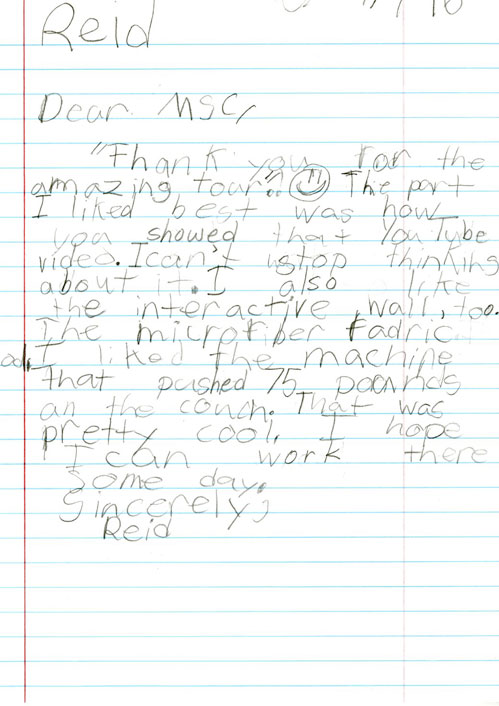 Reid
Dear MSC,
"Thank you for the
amazing tour." The part
I liked best was how
you showed that YouTube
video. I can't stop thinking
about it. I also like
the interactive wall, too.
The microfiber fadric
I liked the machine
that pushed 75 poands
an the couch. That was
pretty cool. I hope
I can work there
some day.
Sincerely,
Reid